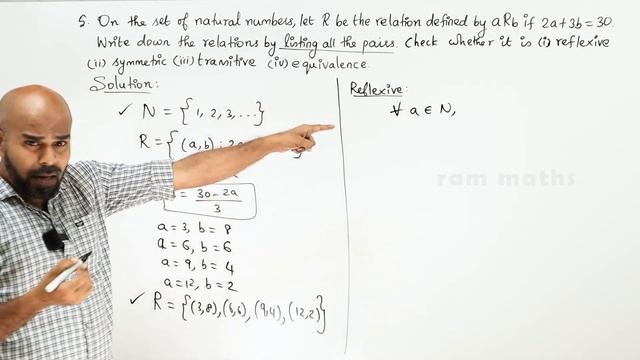 5. On the set of natural numbers, let R be the relation defined by aRb if 2a+3b=30.
Write down the relations by listing all the pairs. Check whether it is (i) reflexive
(ii) symmetric (iii) transitive (iv) equivalence.
Solution:
✓ N = {1, 2, 3, ...}
R = {(a,b) : 2a
= 30-2a / 3
a=3, b=8
a=6, b=6
a=9, b=4
a=12, b=2
✓ R = {(3,8), (6,6), (9,4), (12,2)}
Reflexive:
∀ a ∈ N,
ram maths